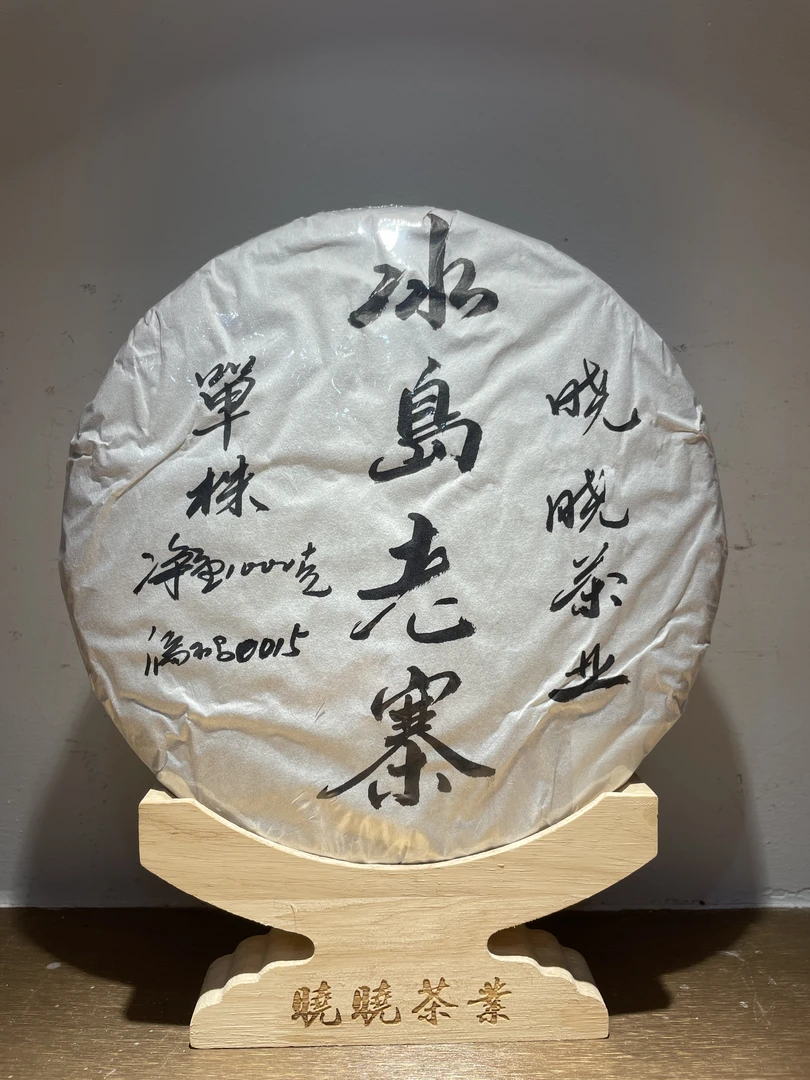 晓晓茶业
冰島老寨
單株
净重1000克
编号0015
曉曉茶業